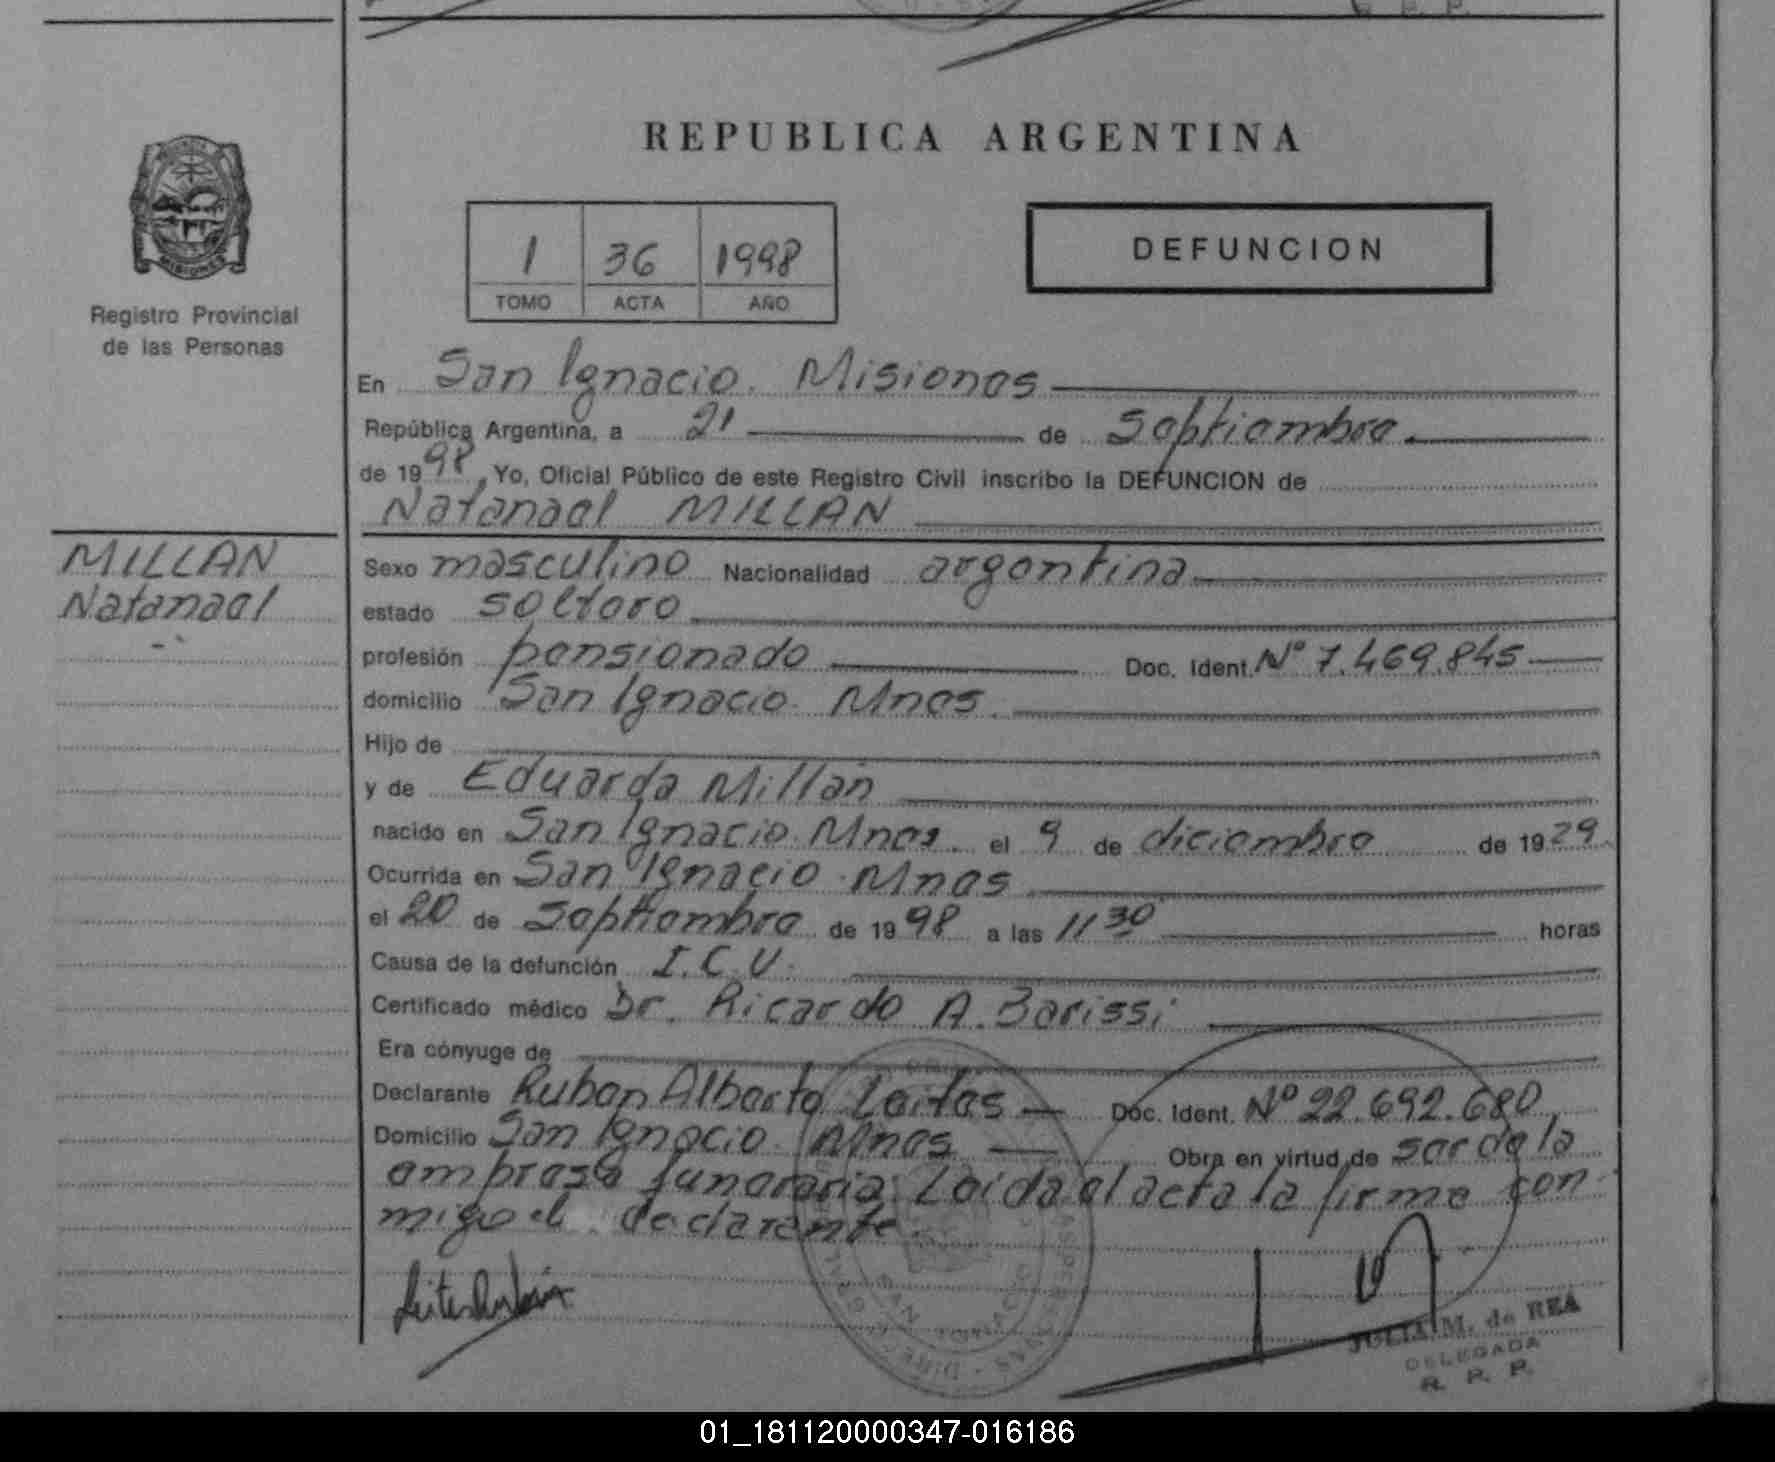 REPUBLICA ARGENTINA
MISIONES
Registro Provincial
de las Personas
1 36 1998
TOMO ACTA AÑO
DEFUNCION
En San Ignacio. Misiones
República Argentina, a 21 de Septiembre.
de 1998, Yo, Oficial Público de este Registro Civil inscribo la DEFUNCION de
Natanael MILLAN
MILLAN
Natanael
Sexo masculino Nacionalidad argentina
estado soltero
profesión pensionado Doc. Ident. Nº 7.469.845
domicilio San Ignacio. Mnes.
Hijo de
y de Eduarda Millán
nacido en San Ignacio. Mnes. el 9 de diciembre de 1929.
Ocurrida en San Ignacio. Mnes
el 20 de Septiembre de 1998 a las 11 30 horas
Causa de la defunción I.C.V.
Certificado médico Dr. Ricardo A. Barissi
Era cónyuge de
Declarante Ruben Alberto Leites Doc. Ident. Nº 22.692.680
Domicilio San Ignacio. Mnes Obra en virtud de ser de la
empresa funeraria. Leída el acta la firma con-
migo el declarante.
Leites Rubén
JULIA M. de REA
DELEGADA
R. P. P.
01_181120000347-016186